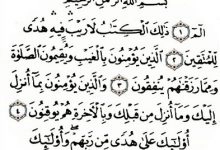 بسم الله الرحمن الرحيم
الٓمٓ ١ ذَٰلِكَ الْكِتَٰبُ لَا رَيْبَ فِيهِ هُدًى
لِّلْمُتَّقِينَ ٢ الَّذِينَ يُؤْمِنُونَ بِالْغَيْبِ وَيُقِيمُونَ الصَّلَوٰةَ
وَمِمَّا رَزَقْنَٰهُمْ يُنفِقُونَ ٣ وَالَّذِينَ يُؤْمِنُونَ بِمَآ أُنزِلَ
إِلَيْكَ وَمَآ أُنزِلَ مِن قَبْلِكَ وَبِالْآخِرَةِ هُمْ يُوقِنُونَ ٤
أُولَٰٓئِكَ عَلَىٰ هُدًى مِّن رَّبِّهِمْ وَأُولَٰٓئِكَ